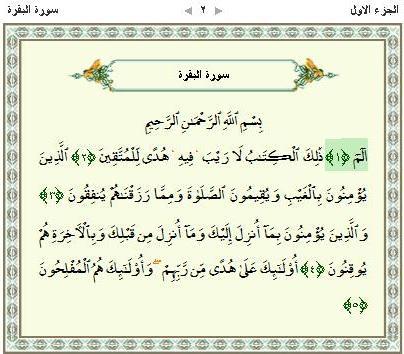 الجزء الاول ◄ ٢ ► سورة البقرة
سورة البقرة
بِسْمِ ٱللَّهِ ٱلرَّحْمَـٰنِ ٱلرَّحِيمِ
الٓمٓ ﴿١﴾ ذَٰلِكَ ٱلْكِتَـٰبُ لَا رَيْبَ ۛ فِيهِ ۛ هُدًى لِّلْمُتَّقِينَ ﴿٢﴾ ٱلَّذِينَ
يُؤْمِنُونَ بِٱلْغَيْبِ وَيُقِيمُونَ ٱلصَّلَوٰةَ وَمِمَّا رَزَقْنَـٰهُمْ يُنفِقُونَ ﴿٣﴾
وَٱلَّذِينَ يُؤْمِنُونَ بِمَآ أُنزِلَ إِلَيْكَ وَمَآ أُنزِلَ مِن قَبْلِكَ وَبِٱلْـَٔاخِرَةِ هُمْ
يُوقِنُونَ ﴿٤﴾ أُو۟لَـٰٓئِكَ عَلَىٰ هُدًى مِّن رَّبِّهِمْ ۖ وَأُو۟لَـٰٓئِكَ هُمُ ٱلْمُفْلِحُونَ
﴿٥﴾